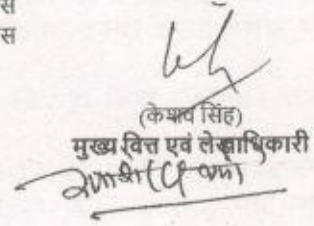 स
स
(केशव सिंह)
मुख्य वित्त एवं लेखाधिकारी